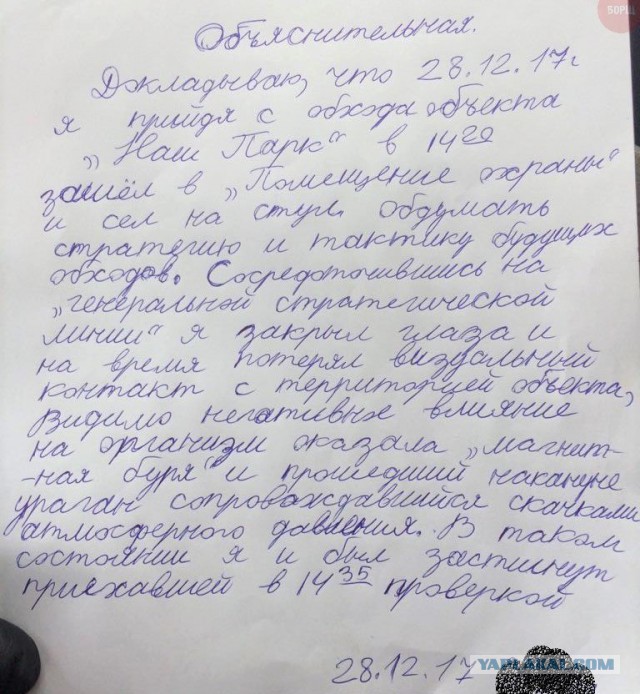 БОРЩ
Объяснительная.
Докладываю, что 28.12.17г
я прийдя с обхода объекта
„Наш Парк“ в 14 20
зашёл в „Помещение охраны“
и сел на стул. Обдумать
стратегию и тактику будущих
обходов. Сосредоточившись на
„генеральной стратегической
линии“ я закрыл глаза и
на время потерял визуальный
контакт с территорией объекта,
Видимо негативное влияние
на организм оказала „магнит-
-ная буря“ и прошедший накануне
ураган сопровождавшийся скачками
атмосферного давления. В таком
состоянии я и был застигнут
приехавшей в 14 35 проверкой
28.12.17
YAPLAKAL.COM